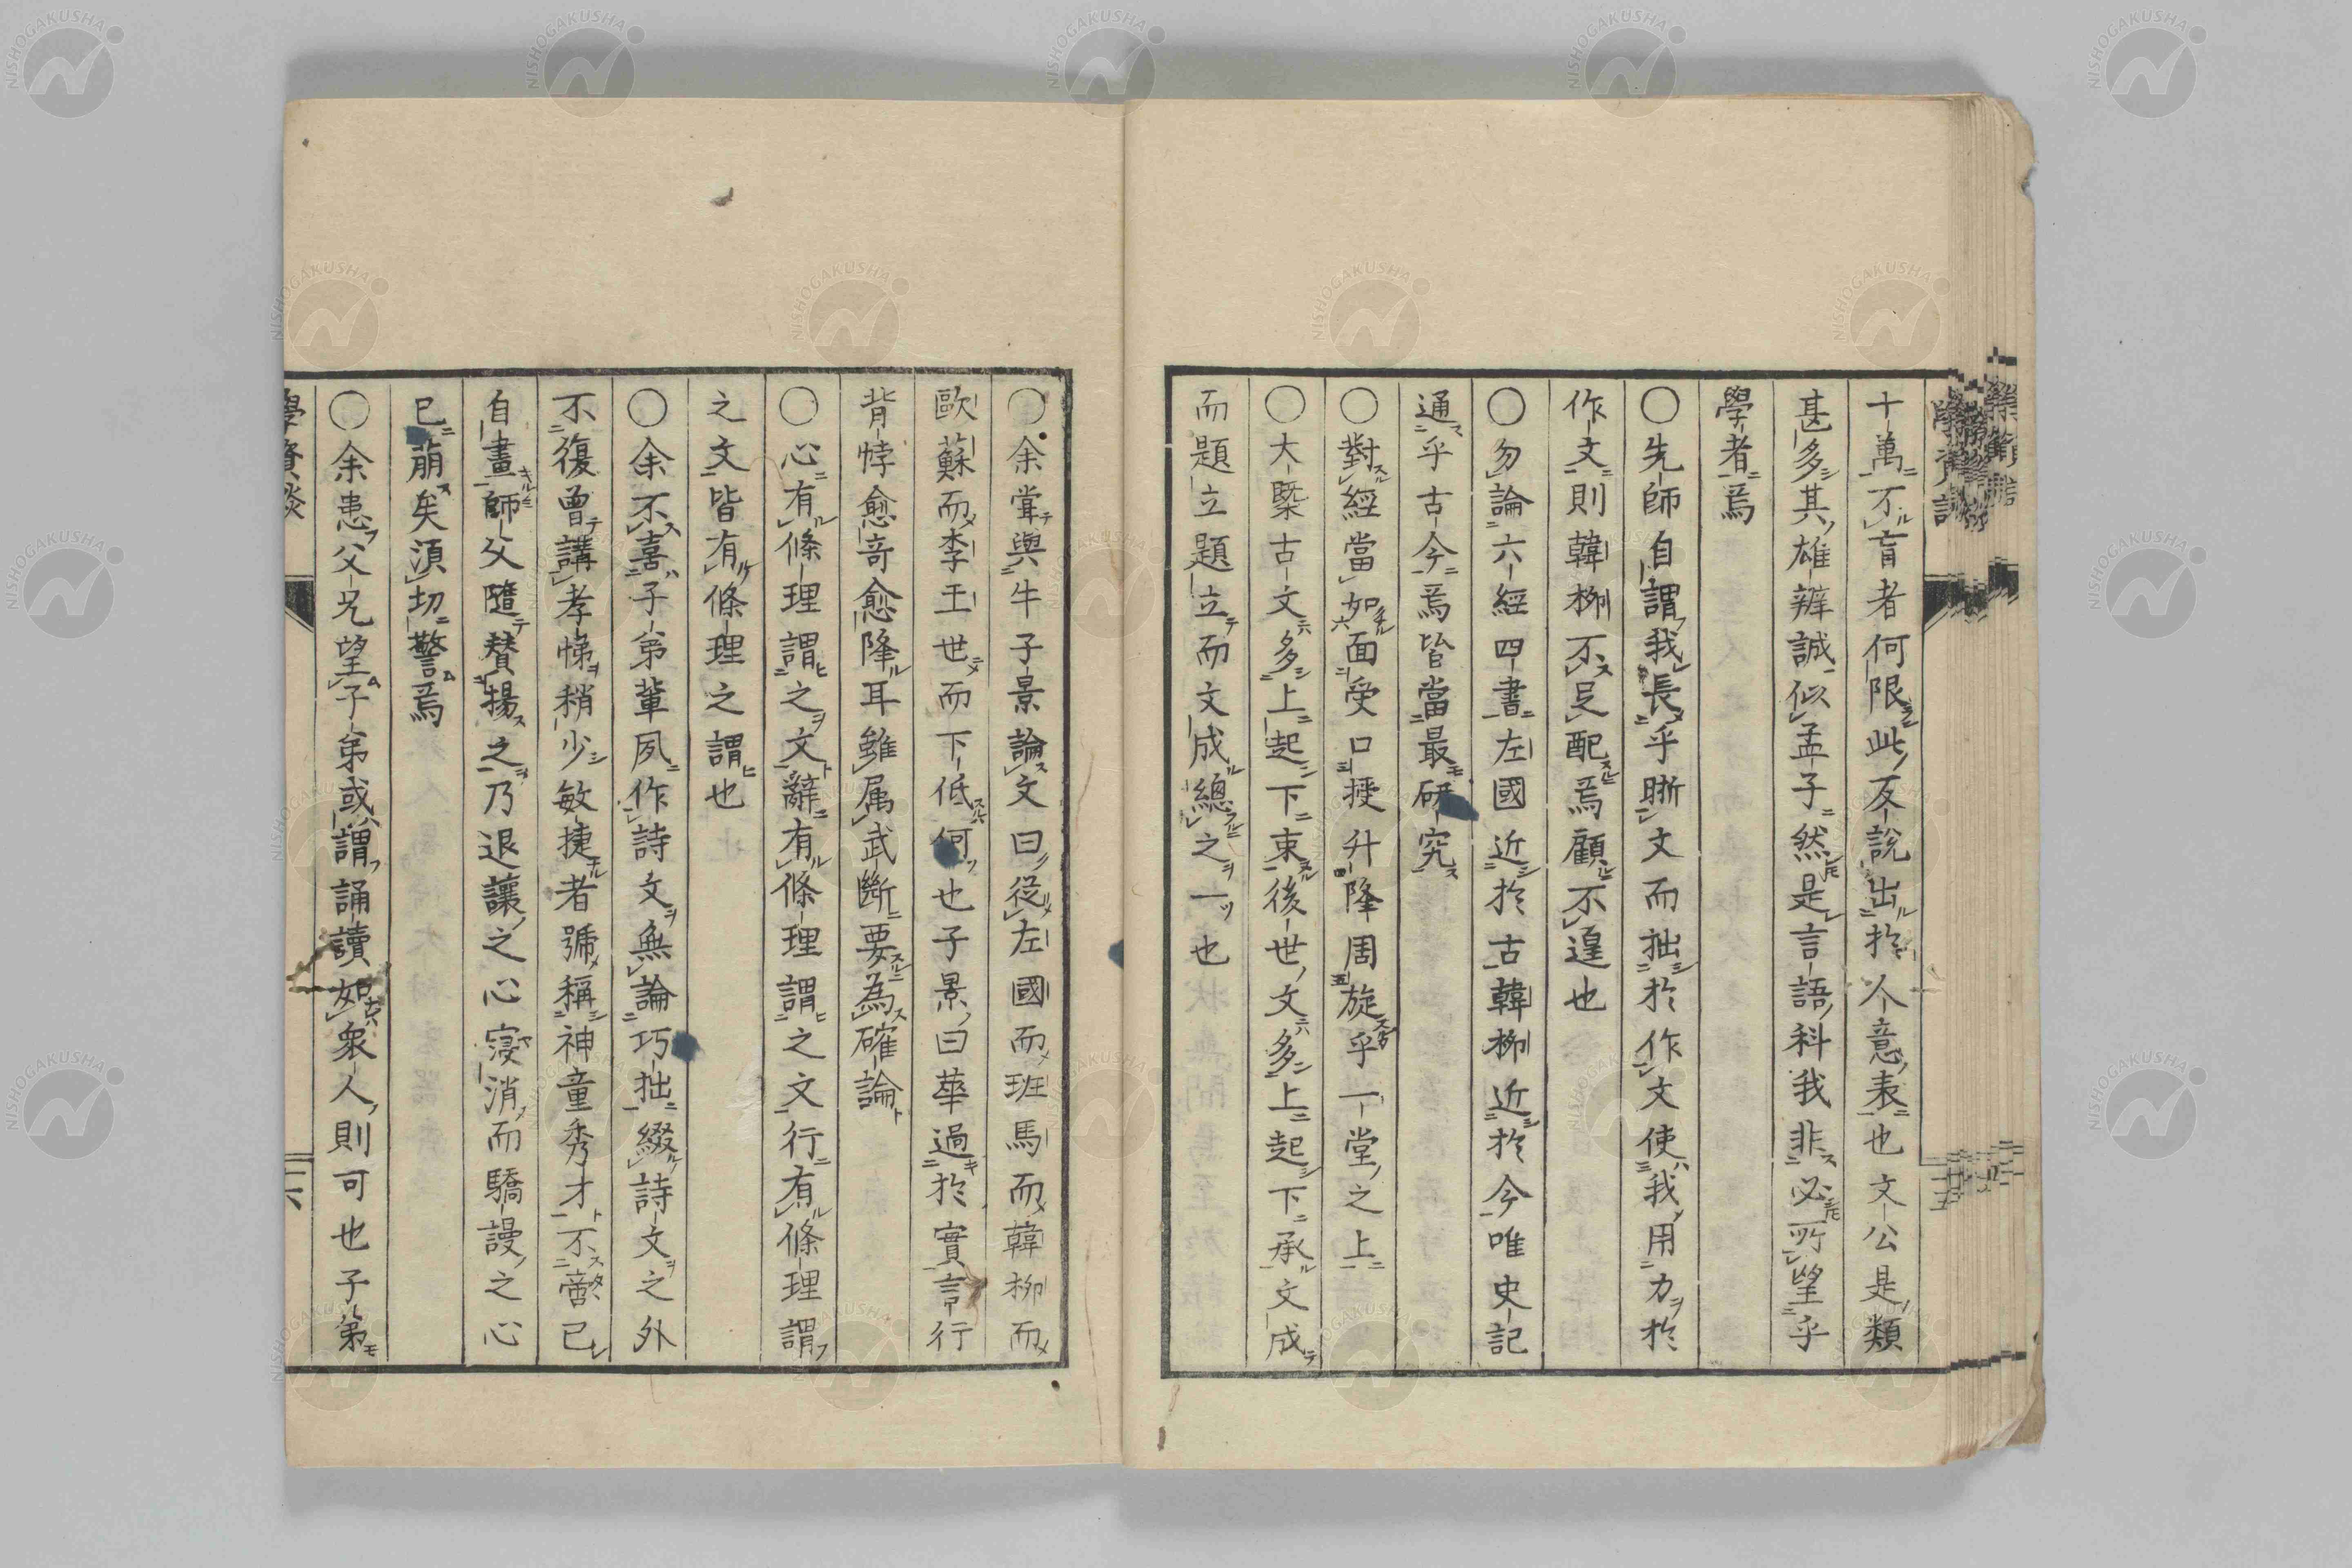 十萬不肓者何限此反説出於人意表也文公是類
甚多其雄辨誠似孟子然是言語科我非必所望乎
學者焉
〇先師自謂我長乎晣文而拙於作文使我用力於
作文則韓柳不足配焉顧不遑也
〇勿論六經四書左國近於古韓柳近於今唯史記
通乎古今焉皆當最研究
〇對經當如面受口授升降周旋乎一堂之上
〇大槩古文多上起下束後世文多上起下承文成
而題立題立而文成總之一也
〇余甞與牛子景論文曰從左國而班馬而韓柳而
歐蘇而李王世而下低何也子景曰華過於實言行
背悖愈竒愈降耳雖属武斷要為確論
〇心有條理謂之文辭有條理謂之文行有條理謂
之文皆有條理之謂也
〇余不喜子弟輩夙作詩文無論巧拙綴詩文之外
不復曾講孝悌稍少敏捷者號稱神童秀才不啻已
自畫師父隨賛揚之乃退讓之心寖消而驕謾之心
已萠矣湏切警焉
〇余患父兄望子弟或謂誦讀如衆人則可也子弟
學資談
十六